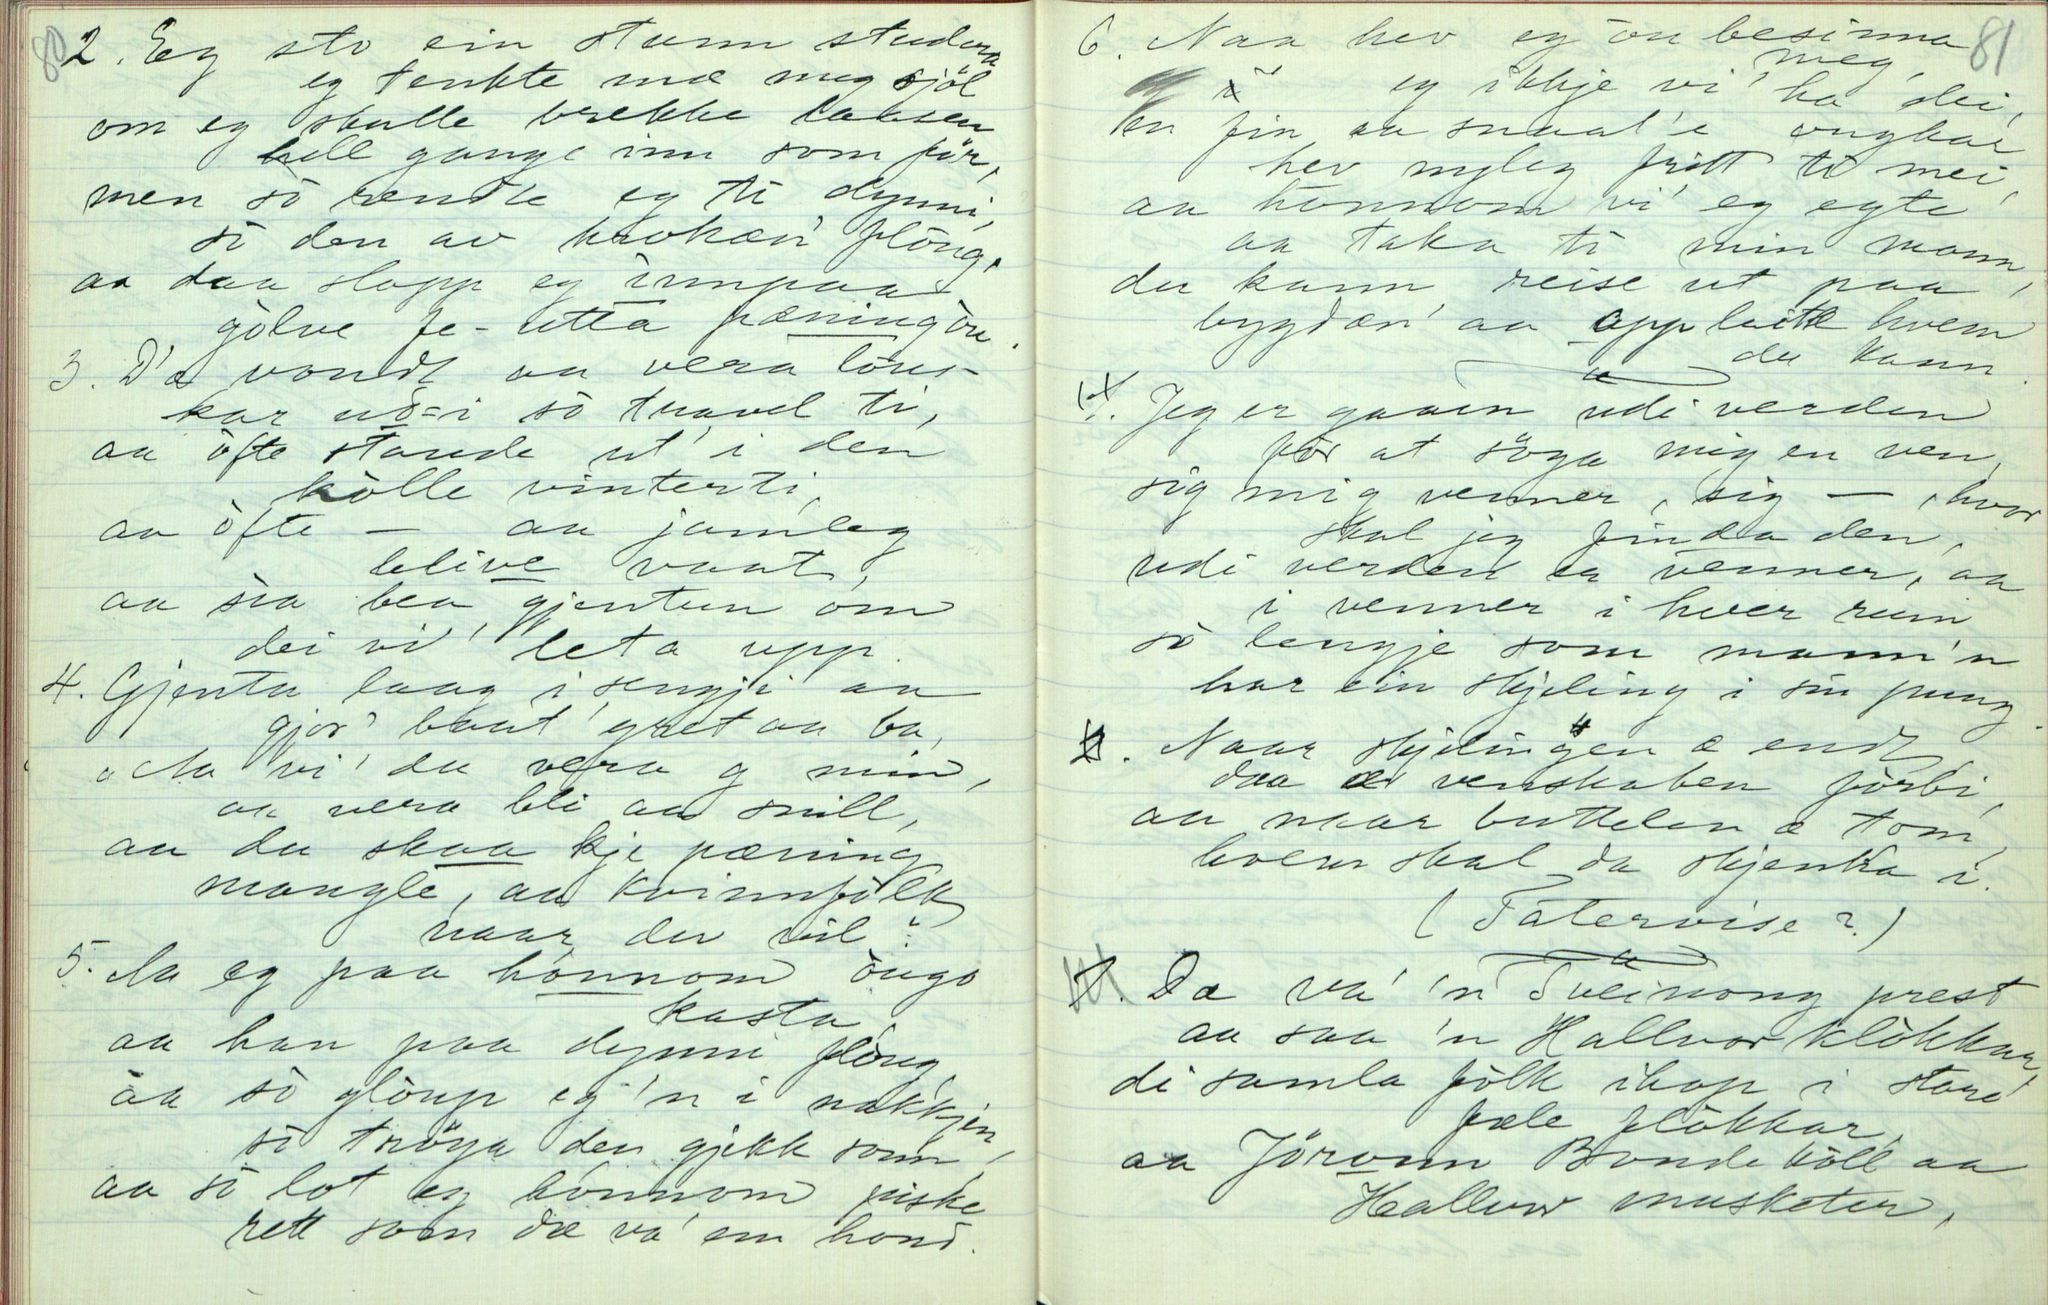 80
2. Eg sto ein stunn studera
eg tenkte mæ meg sjöl
om eg skulle brekke laasen
hell gange inn som för,
men so rende eg ti dynni,
so den av krokæn' flöug,
aa daa slapp eg innpaa
gölve fe-utta pæningöu.
3. D'æ vondt aa vera lous-
kar ud-i so travel ti,
aa ofte stande ut' i den
kolle vinterti,
aa ofte — aa jamleg
blive vaat,
aa sia bea gjentun om
dei vi' leta upp.
4. Gjenta laag i sengji aa
gjor' baat' gret aa ba,
„Aa vi' du vera g min,
aa vera bli aa snill,
aa du skaa kje pæning
mangle, aa kvinnfolk
naar du vil":
5. Aa eg paa honnom öugo
kasta,
aa han paa dynni flöug,
aa so glöup eg 'n i nakkjen,
so tröya den gjekk sonn,
aa so lot eg honnom piske
rett som dæ va' en hond.
81
6. Naa hev eg ön besinna
meg,
eg ikkje vi' ha dei,
en fin aa snaal'e ongkar
hev nyleg fritt te mei,
aa honnom vi' eg egte
aa taka ti min mann,
du kann reise ut paa
bygdæn' aa opp leite hvem
du kann.
Jeg er gaaen udi verden
for at söga mig en ven,
sig mig venner, sig — , hvor
skal jeg finda den,
udi verden er venner, aa
i venner i hver rum
so lengje som mann'n
har ein skjeling i sin pung.
Naar skjelingen æ endt
daa er venskaben forbi,
aa naar buttelen æ tom,
hvem skal da skjenka i.
(Tatervise?)
Dæ va' 'n Sveinong prest
aa saa 'n Hallvor klokkar,
di samla folk ihop i store
fæle flokkar,
aa Jöronn Bondekoll aa
Hallvor musketer,